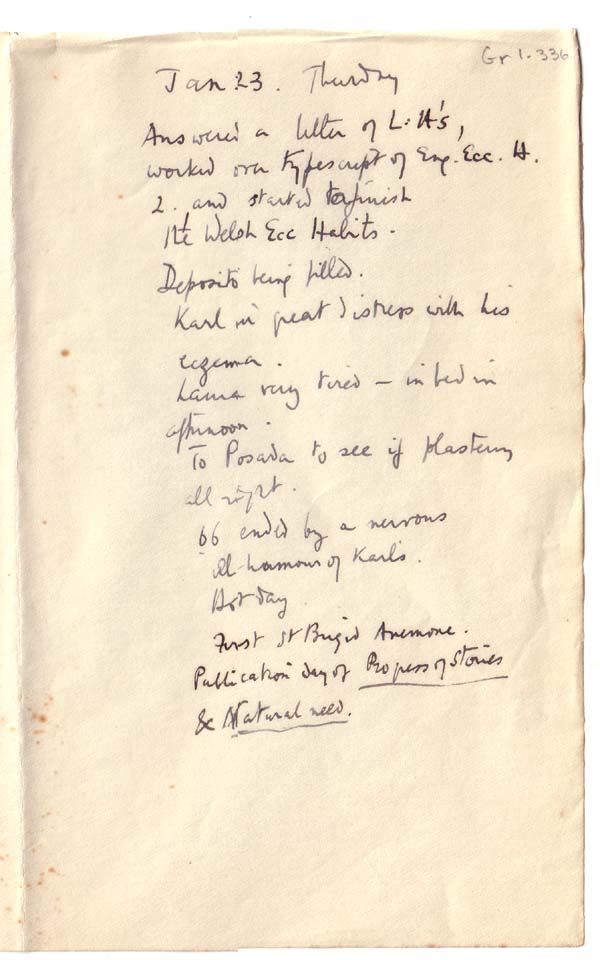 Gr 1-336
Jan 23. Thursday
Answered a letter of L. H's,
worked over typescript of Eng. Ecc. H.
2. and started to finish
Welsh Ecc Habits.
Deposito being filled.
Karl in great distress with his
eczema.
Laura very tired – in bed in
afternoon.
To Posada to see if plastering
all right.
66 ended by a nervous
ill-humour of Karl's.
Hot day
First St Brigid Anemone.
Publication day of Progress of Stories
& Natural need.